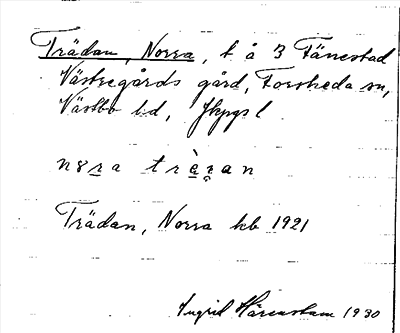 Trädan, Norra, t å 3 Tånestad
Västregårds gård, Forsheda sn,
Västbo hd, Jkpgs l
nɤra trạ̈ran
Trädan, Norra kb 1921
Ingrid Härenstam 1930